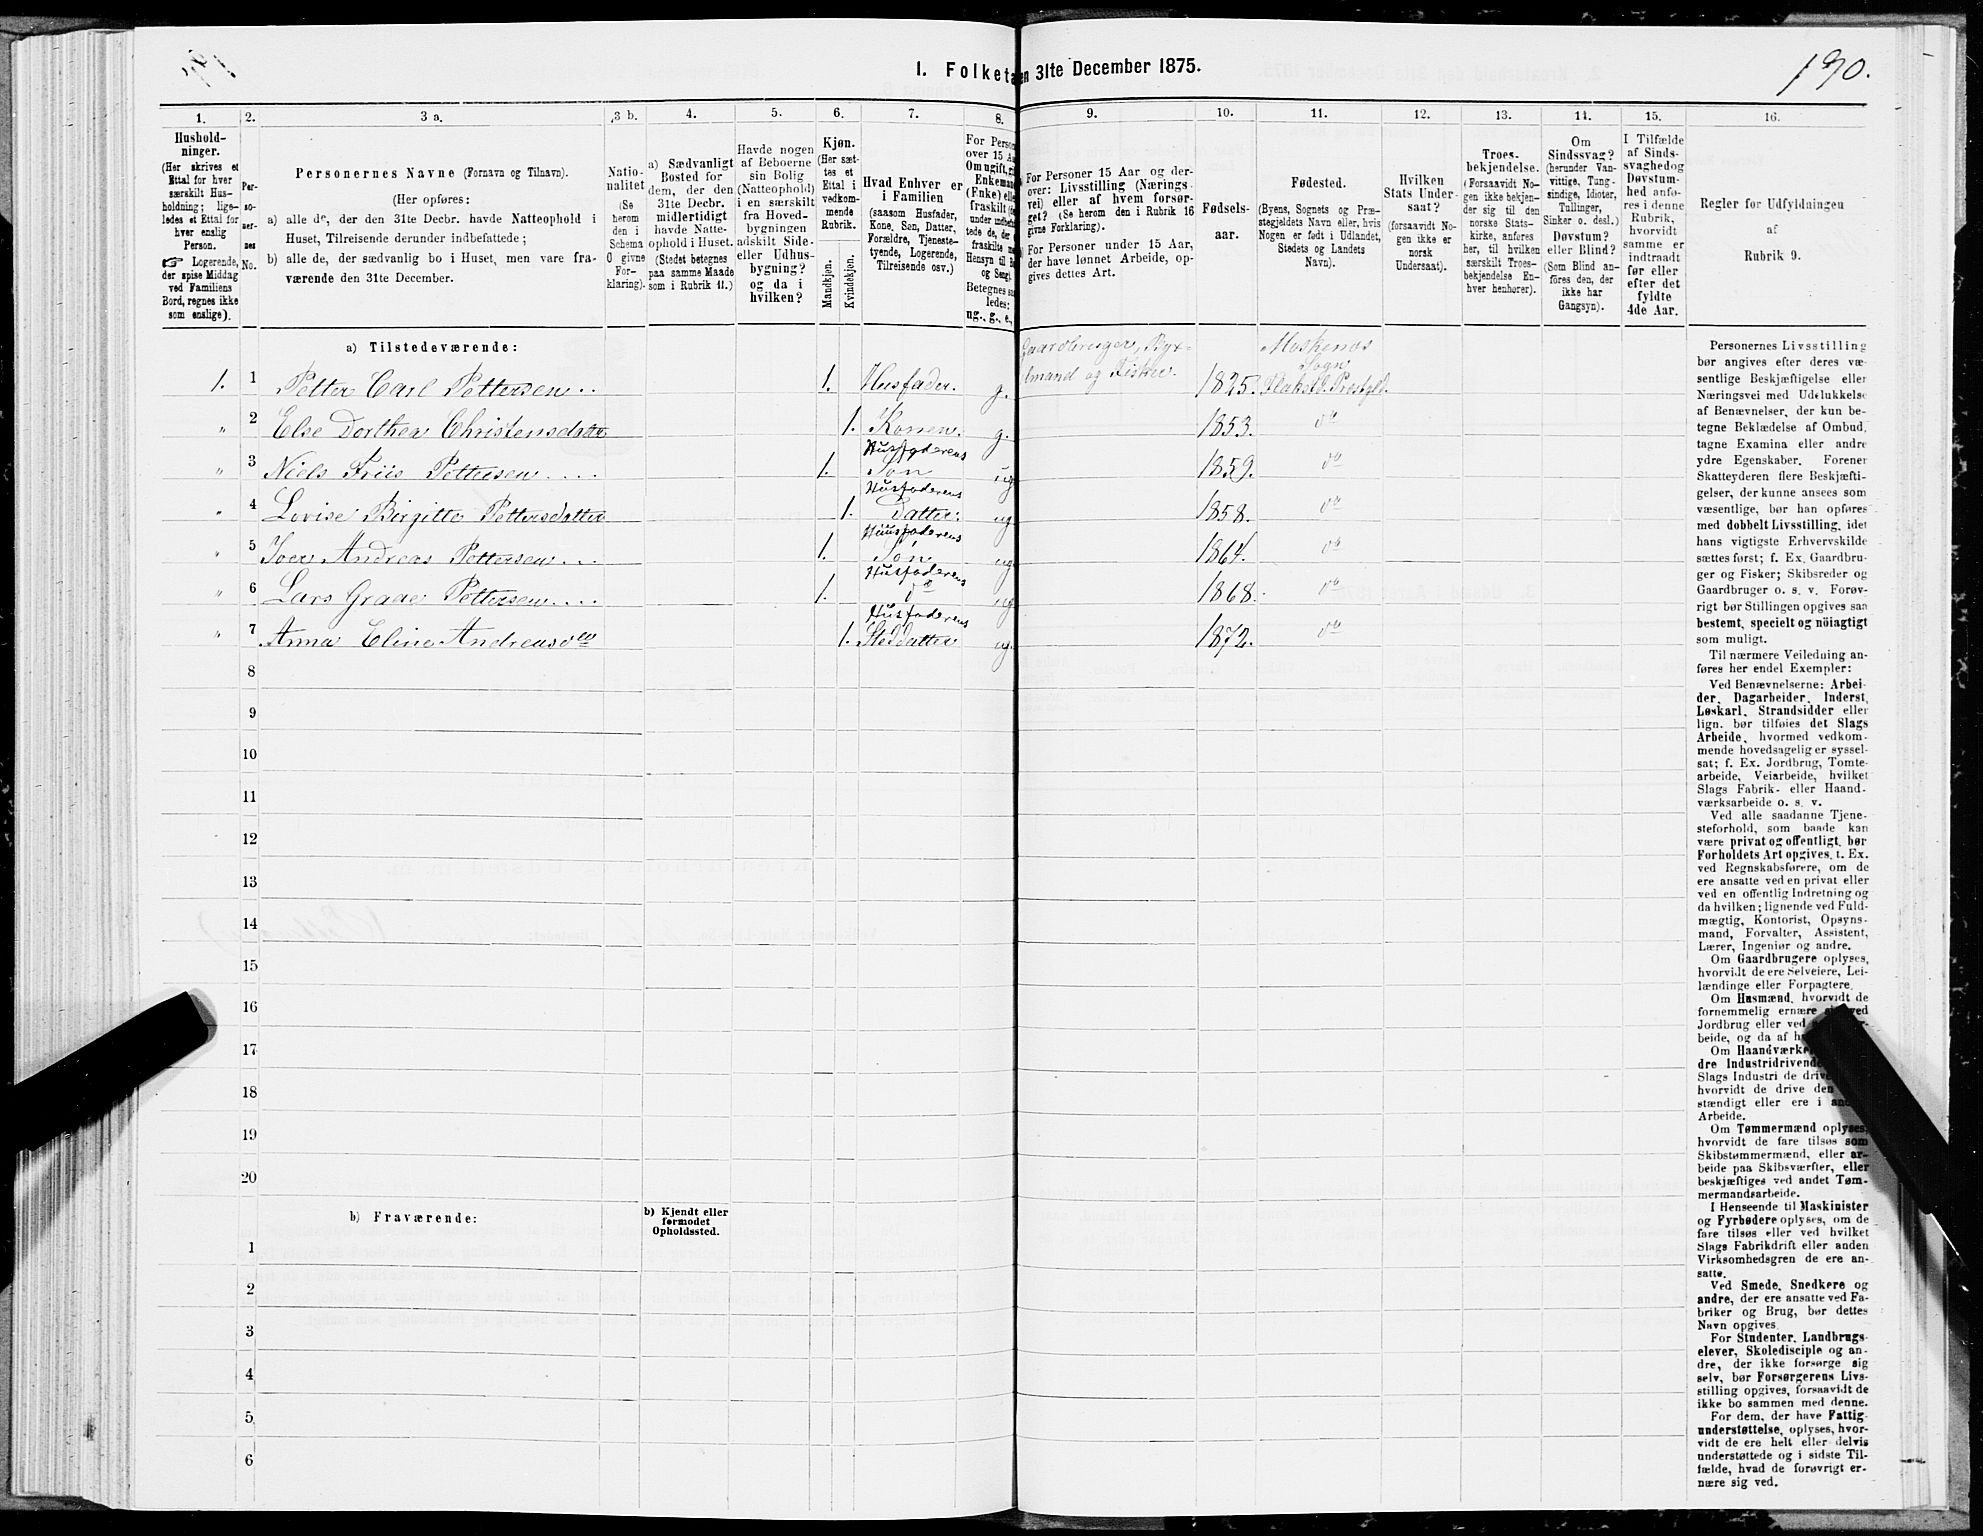 190.
I. Folketæ
en 31te December 1875.
1.
Hushold-
ninger.
(Her skrives et
Ettal for hver
særskilt Hus-
holdning; lige-
ledes et Ettal for
hver enslig
Person.
☞ Logerende,
der spise Middag
ved Familiens
Bord, regnes ikke
som enslige).
2.
Per-
so-
ner-
nes
No.
3 a.
Personernes Navne (Fornavn og Tilnavn).
(Her opføres:
a) alle de, der den 31te Decbr. havde Natteophold i
Huset, Tilreisende derunder indbefattede;
b) alle de, der sædvanlig bo i Huset, men vare fra-
værende den 31te December.
3 b.
Natio-
nalitet
(Se
herom
den i
Schema
O givne
For-
klaring).
4.
a) Sædvanligt
Bosted for
dem, der den
31te Decbr.
midlertidigt
havde Natte-
ophold i Huset.
(Stedet betegnes
paa samme Maade
som i Rubrik 11.)
5.
Havde nogen
af Beboerne
sin Bolig
(Natteophold)
i en særskilt
fra Hoved-
bygningen
adskilt Side-
eller Udhus-
bygning?
og da i
hvilken?
6.
Kjøn.
(Her sæt-
tes et
Ettal i
vedkom-
mende
Rubrik.
Mandkjøn.
Kvindekjøn.
7.
Hvad Enhver er
i Familien
(saasom Husfader,
Kone, Søn, Datter,
Forældre, Tjeneste-
tyende, Logerende,
Tilreisende osv.)
8.
For Person
over 15 Aa
Om ugift, gi
Enkemand
(Enke) elle
fraskilt (
under indbefat
tede de, der
fraskilte me
Hensyn til B
og Seng).
Betegnes saa
ledes:
ug., g., e.,
9.
For Personer 15 Aar og der-
over: Livsstilling (Nærings-
vei) eller af hvem forsør-
get? (Se herom den i Rubrik 16
givne Forklaring).
For Personer under 15 Aar,
der have lønnet Arbeide, op-
gives dettes Art.
10.
Fødsels-
aar.
11.
Fødested.
(Byens, Sognets og Præ-
stegjeldets Navn eller, hvis
Nogen er født i Udlandet,
Stedets og Landets
Navn).
12.
Hvilken
Stats Under-
saat?
(forsaavidt No-
gen ikke er
norsk
Undersaat).
13.
Troes-
bekjendelse.
(Forsaavidt No-
gen ikke bekjen-
der sig til den
norske Stats-
kirke, anføres
her, til hvilken
særskilt Troes-
bekjendelse En-
hver henhører).
14.
Om
Sindssvag?
(herunder Van-
vittige, Tung-
sindige, Idioter,
Tullinger,
Sinker o. desl.)
Døvstum?
eller Blind?
(Som Blind an-
föres den, der
ikke har
Gangsyn).
15.
I Tilfælde
af Sinds-
svaghed og
Døvstum-
hed anfø-
res i denne
Rubrik,
hvorvidt
samme er
indtraadt
før eller
efter det
fyldte
4de Aar.
16.
Regler for Udfyldningen
af
Rubrik 9.
a) Tilstedeværende:
1. 1 Petter Carl Pettersen.. 1. Husfader. g. Gaardbruger, Byx-
mand og Fisker. 1825. Moskenæs
Sogn
Flakstd. Prestgld.
" 2 Else Dorthea Christensdatter 1. Konen. g. 1853. do
" 3 Niels Friis Pettersen.... 1. Husfaderens
Søn ug 1859. do
" 4 Lovise Birgitte Pettersdatter 1. Husfaderens
Datter. ug 1858. do
" 5 Iver Andreas Pettersen... 1. Husfaderens
Søn ug. 1864. do
" 6 Lars Graae Pettersen.... 1. Husfaderens
do ug 1868. do
" 7 Anna Eline Andreasda 1. Husfaderens
Steddatter ug. 1872. do
8
9
10
11
12
13
14
15
16
17
18
19
20
b) Fraværende:
b) Kjendt eller
formodet
Opholdssted.
1
2
3
4
5
6
Personernes Livsstilling
bør angives efter deres væ-
sentlige Beskjæftigelse eller
Næringsvei med Udelukkelse
af Benævnelser, der kun be-
tegne Beklædelse af Ombud,
tagne Examina eller andre
ydre Egenskaber. Forener
Skatteyderen flere Beskjæfti-
gelser, der kunne ansees som
væsentlige, bør han opføres
med dobbelt Livsstilling, idet
hans vigtigste Erhvervskilde
sættes først; f. Ex. Gaardbru-
ger og Fisker; Skibsreder og
Gaardbruger o. s. v. Forøv-
rigt bør Stillingen opgives saa
bestemt, specielt og nöiagtigt
som muligt.
Til nærmere Veiledning an-
føres her endel Exempler:
Ved Benævnelserne: Arbei-
der, Dagarbeider, Inderst,
Løskarl, Strandsidder eller
lign. bør tilføies det Slags
Arbeide, hvormed vedkom-
mende hovedsagelig er syssel-
sat; f. Ex. Jordbrug, Tomte-
arbeide, Veiarbeide, hvilket
Slags Fabrik- eller Haand-
værksarbeide o. s. v.
Ved alle saadanne Tjene-
steforhold, som baade kan
være privat og offentligt, bør
Forholdets Art opgives, t. Ex.
ved Regnskabsførere, om de
ere ansatte ved en privat eller
ved en offentlig Indretning og
da hvilken; lignende ved Fuld-
mægtig, Kontorist, Opsyns-
mand, Forvalter, Assistent,
Lærer, Ingeniør og andre.
Om Gaardbrugere oplyses,
hvorvidt de ere Selveiere, Lei-
lændinge eller Forpagtere.
Om Husmænd, hvorvidt de
fornemmelig ernære sig ved
Jordbrug eller ved
beide, og da af h
Om Haandværke
dre Industridrivende
Slags Industri de drive
hvorvidt de drive den
stændigt eller ere i andens
Arbeide.
Om Tømmermænd oplyses,
hvorvidt de fare tilsøs som
Skibstømmermænd, eller ar-
beide paa Skibsværfter, eller
beskjæftiges ved andet Tøm-
mermandsarbeide.
I Henseende til Maskinister
og Fyrbødere oplyses, om de
fare tilsøs eller ved hvilket
Slags Fabrikdrift eller anden
Virksomhedsgren de ere an-
satte.
Ved Smede, Snedkere og
andre, der ere ansatte ved Fa-
briker og Brug, bør dettes
Navn opgives.
For Studenter, Landbrugs-
elever, Skoledisciple og an-
dre, der ikke forsørge sig
selv, bør Forsørgerens Livs-
stilling opgives, forsaavidt de
ikke bo sammen med denne.
For dem, der have Fattig-
understøttelse, oplyses, hvor-
vidt de ere helt eller delvis
understøttede og i sidste Til-
fælde, hvad de forøvrigt er-
nære sig ved.